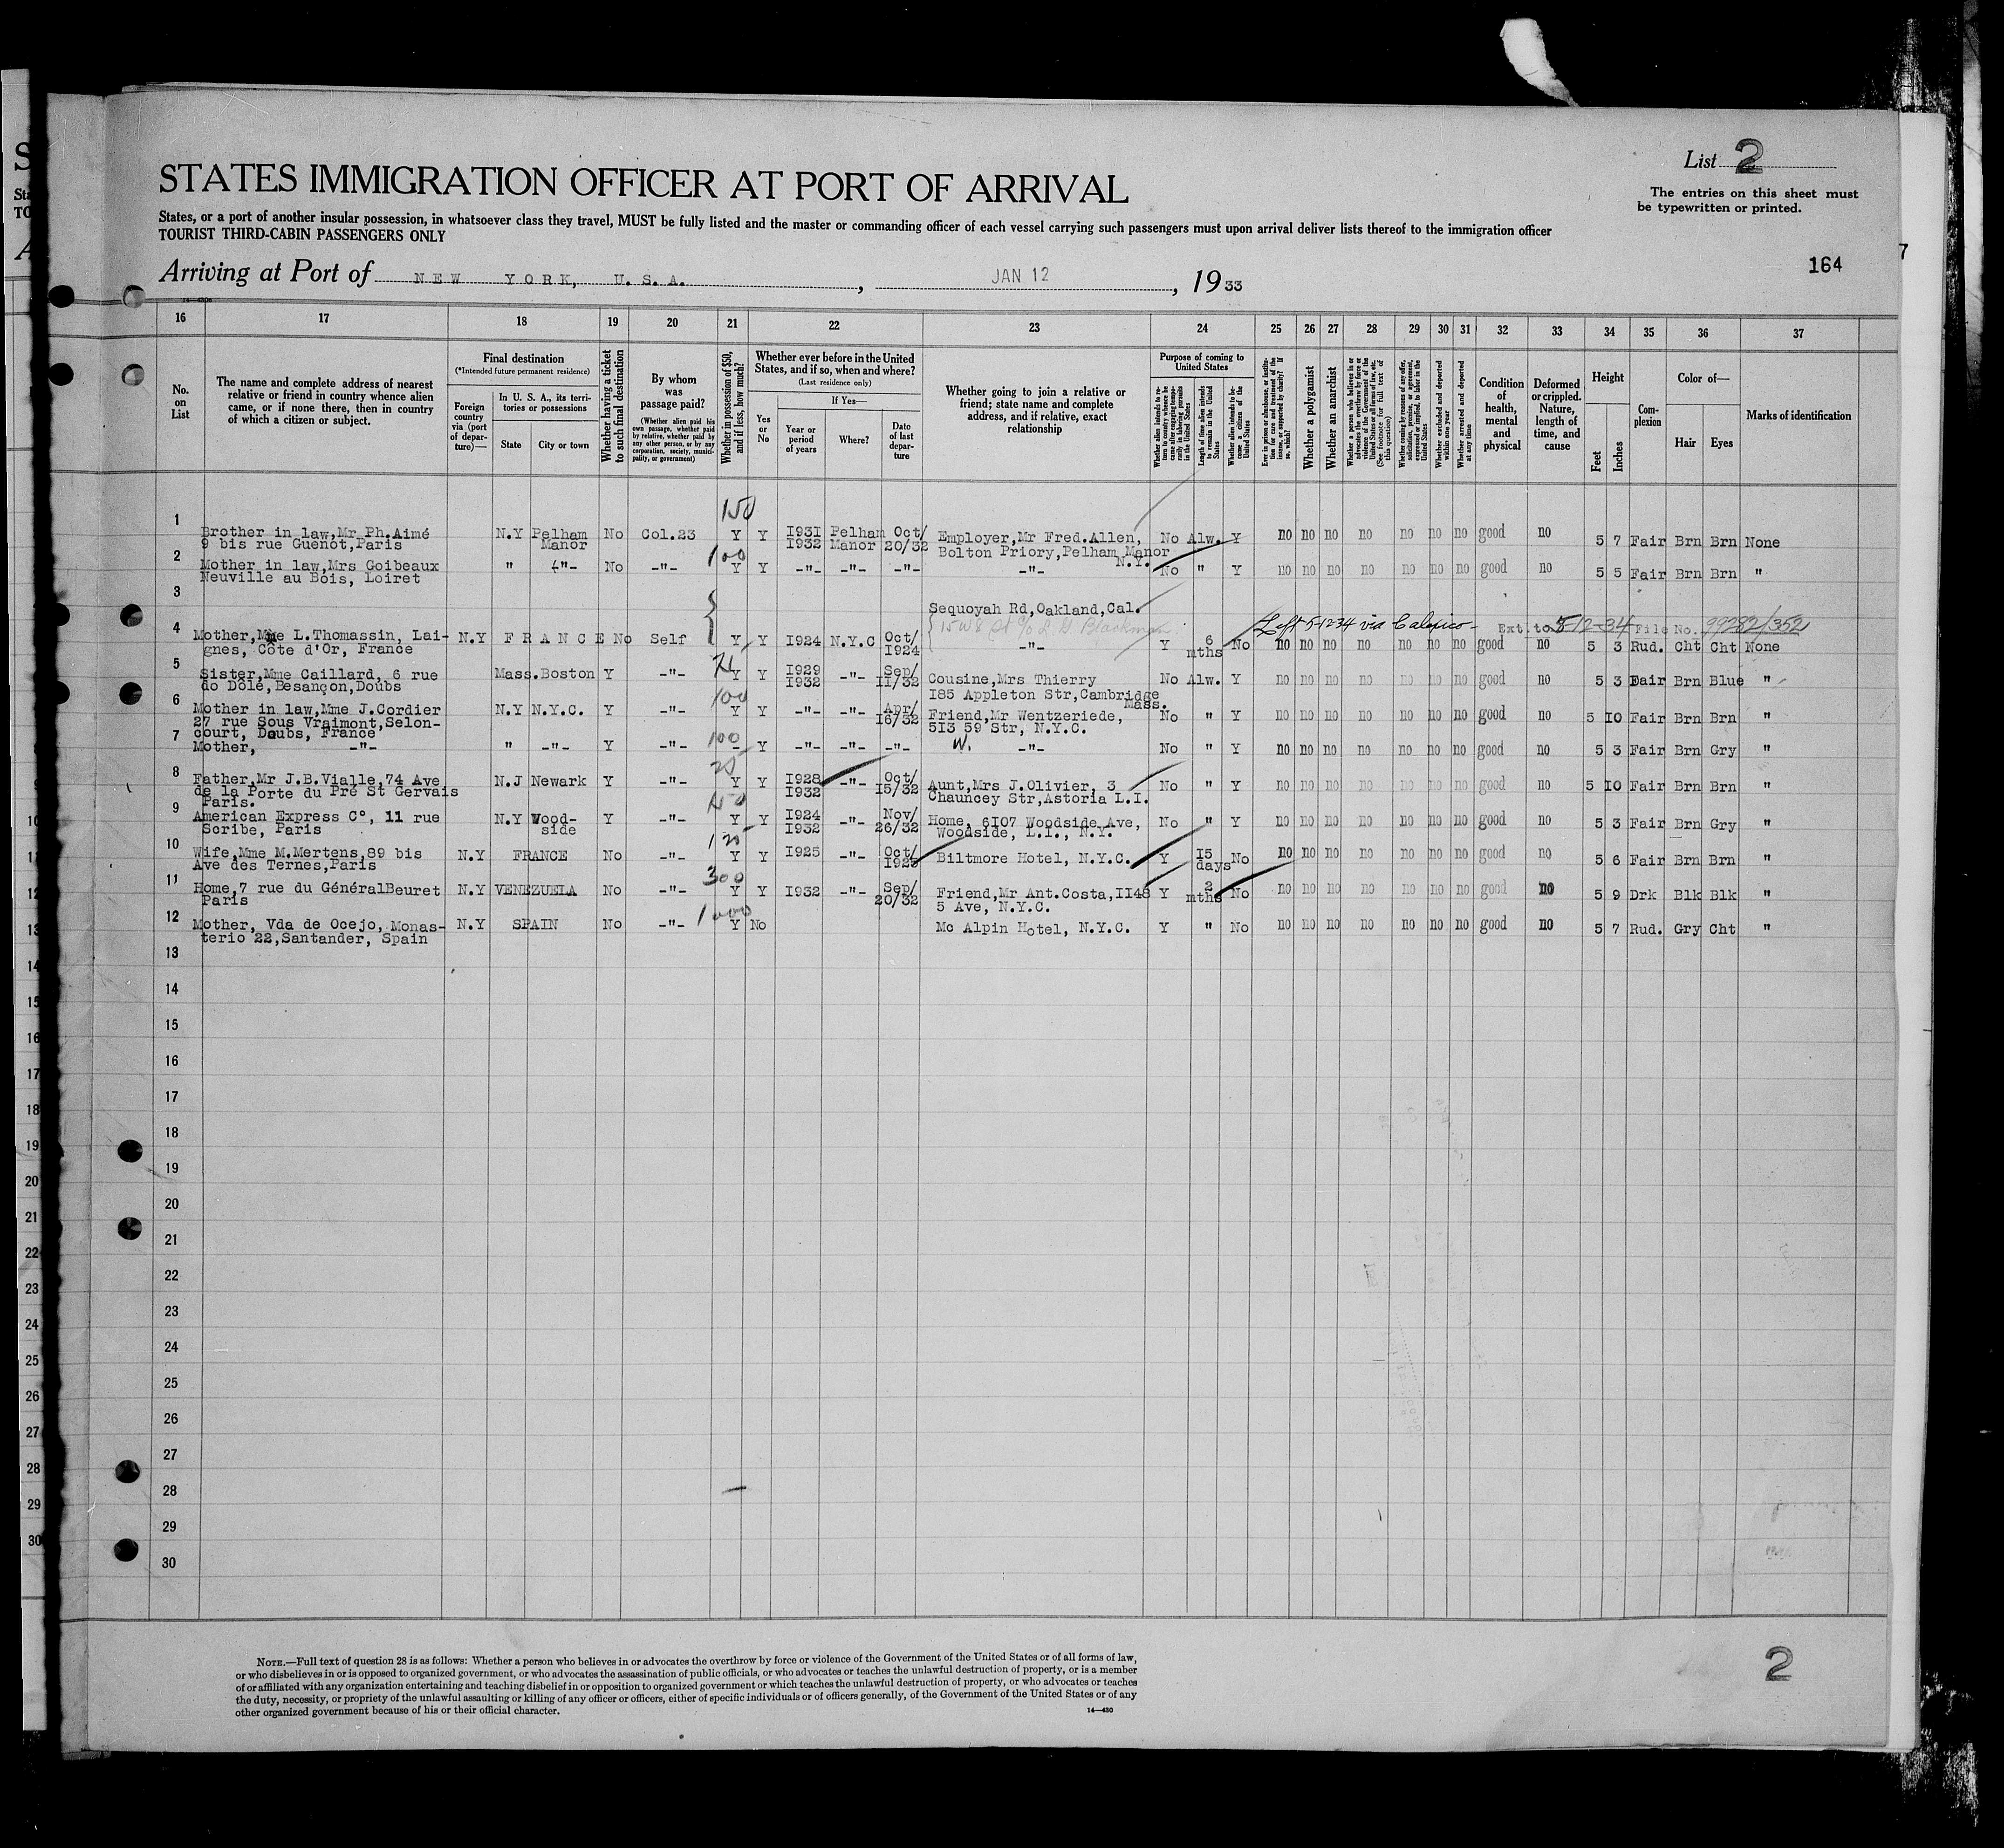 List 2
STATES IMMIGRATION OFFICER AT PORT OF ARRIVAL
The entries on this sheet must
be typewritten or printed.
States, or a port of another insular possession, in whatsoever class they travel, MUST be fully listed and the master or commanding officer of each vessel carrying such passengers must upon arrival deliver lists thereof to the immigration officer
TOURIST THIRD-CABIN PASSENGERS ONLY
164
Arriving at Port of NEW YORK, U.S.A., JAN 12, 1933
16 17 18 19 20 21 22 23 24 25 26 27 28 29 30 31 32 33 34 35 36 37
No. on List
The name and complete address of nearest relative or friend in country whence alien came, or if none there, then in country of which a citizen or subject.
Final destination
(*Intended future permanent residence)
Foreign country via (port of departure)—
In U. S. A., its territories or possessions
State
City or town
Whether having a ticket to such final destination
By whom was passage paid?
(Whether alien paid his own passage, whether paid by relative, whether paid by any other person, or by any corporation, society, municipality, or government)
Whether in possession of $50, and if less, how much?
Whether ever before in the United States, and if so, when and where?
(Last residence only)
Yes or No
If Yes—
Year or period of years
Where?
Date of last departure
Whether going to join a relative or friend; state name and complete address, and if relative, exact relationship
Purpose of coming to United States
Whether alien intends to return to country whence he came after engaging temporarily in laboring pursuits in the United States
Length of time alien intends to remain in the United States
Whether alien intends to become a citizen of the United States
Ever in prison or almshouse, or institution for care and treatment of the insane, or supported by charity? If so, which?
Whether a polygamist
Whether an anarchist
Whether a person who believes in or advocates the overthrow by force or violence of the Government of the United States or all forms of law, etc. (See footnote for full text of this question)
Whether coming by reason of any offer, solicitation, promise, or agreement, expressed or implied, to labor in the United States
Whether excluded and deported within one year
Whether arrested and deported at any time
Condition of health, mental and physical
Deformed or crippled. Nature, length of time, and cause
Height
Feet
Inches
Complexion
Color of—
Hair
Eyes
Marks of identification
150
1 Brother in law,Mr Ph.Aimé N.Y Pelham No Col.23 Y Y I93I Pelham Oct/ Employer,Mr Fred.Allen, No Alw. Y no no no no no no no good no 5 7 Fair Brn Brn None
9 bis rue Guenot,Paris Manor I932 Manor 20/32 Bolton Priory,Pelham Manor N.Y.
100
2 Mother in law,Mrs Goibeaux " -"- No -"- Y Y -"- -"- -"- -"- No " Y no no no no no no no good no 5 5 Fair Brn Brn "
Neuville au Bois, Loiret
3 Sequoyah Rd,Oakland,Cal.
Left 5-12-34 via Calexico- Ext. to 5-12-34 File No. 99282/352
4 Mother,Mme L.Thomassin, Lai- N.Y FRANCE No Self Y Y I924 N.Y.C Oct/ -"- Y 6 No no no no no no no no good no 5 3 Rud. Cht Cht None
gnes, Côte d'Or, France I924 mths
5 Sister,Mme Caillard, 6 rue Mass. Boston Y -"- Y Y I929 -"- Sep/ Cousine,Mrs Thierry No Alw. Y no no no no no no no good no 5 3 Fair Brn Blue "
do Dôle,Besançon,Doubs I932 II/32 I85 Appleton Str,Cambridge Mass.
100
6 Mother in law,Mme J.Cordier N.Y N.Y.C. Y -"- Y Y -"- -"- Apr/ Friend,Mr Wentzeriede, No " Y no no no no no no no good no 5 IO Fair Brn Brn "
27 rue Sous Vraimont,Selon- I6/32 5I3 59 Str, N.Y.C.
court, Doubs, France
100
7 Mother, -"- " -"- Y -"- - Y -"- -"- -"- W. -"- No " Y no no no no no no no good no 5 3 Fair Brn Gry "
8 Father,Mr J.B.Vialle,74 Ave N.J Newark Y -"- Y Y I928 -"- Oct/ Aunt,Mrs J.Olivier, 3 No " Y no no no no no no no good no 5 IO Fair Brn Brn "
de la Porte du Pré St Gervais I932 I5/32 Chauncey Str,Astoria L.I.
Paris.
9 American Express C°, 11 rue N.Y Wood- Y -"- Y Y I924 -"- Nov/ Home, 6I07 Woodside Ave, No " Y no no no no no no no good no 5 3 Fair Brn Gry "
Scribe, Paris side I932 26/32 Woodside, L.I., N.Y.
10 Wife,Mme M.Mertens,89 bis N.Y FRANCE No -"- Y Y I925 -"- Oct/ Biltmore Hotel, N.Y.C. Y I5 No no no no no no no no good no 5 6 Fair Brn Brn "
Ave des Ternes,Paris I925 days
300
11 Home,7 rue du GénéralBeuret N.Y VENEZUELA No -"- Y Y I932 -"- Sep/ Friend,Mr Ant.Costa,II48 Y 2 No no no no no no no no good no 5 9 Drk Blk Blk "
Paris 20/32 5 Ave, N.Y.C. mths
1000
12 Mother, Vda de Ocejo, Monas- N.Y SPAIN No -"- Y No Mc Alpin Hotel, N.Y.C. Y " No no no no no no no no good no 5 7 Rud. Gry Cht "
terio 22,Santander, Spain
13
14
15
16
17
18
19
20
21
22
23
24
25
26
27
28
29
30
NOTE.—Full text of question 28 is as follows: Whether a person who believes in or advocates the overthrow by force or violence of the Government of the United States or of all forms of law,
or who disbelieves in or is opposed to organized government, or who advocates the assassination of public officials, or who advocates or teaches the unlawful destruction of property, or is a member
of or affiliated with any organization entertaining and teaching disbelief in or opposition to organized government or which teaches the unlawful destruction of property, or who advocates or teaches
the duty, necessity, or propriety of the unlawful assaulting or killing of any officer or officers, either of specific individuals or of officers generally, of the Government of the United States or of any
other organized government because of his or their official character.
14—430
2